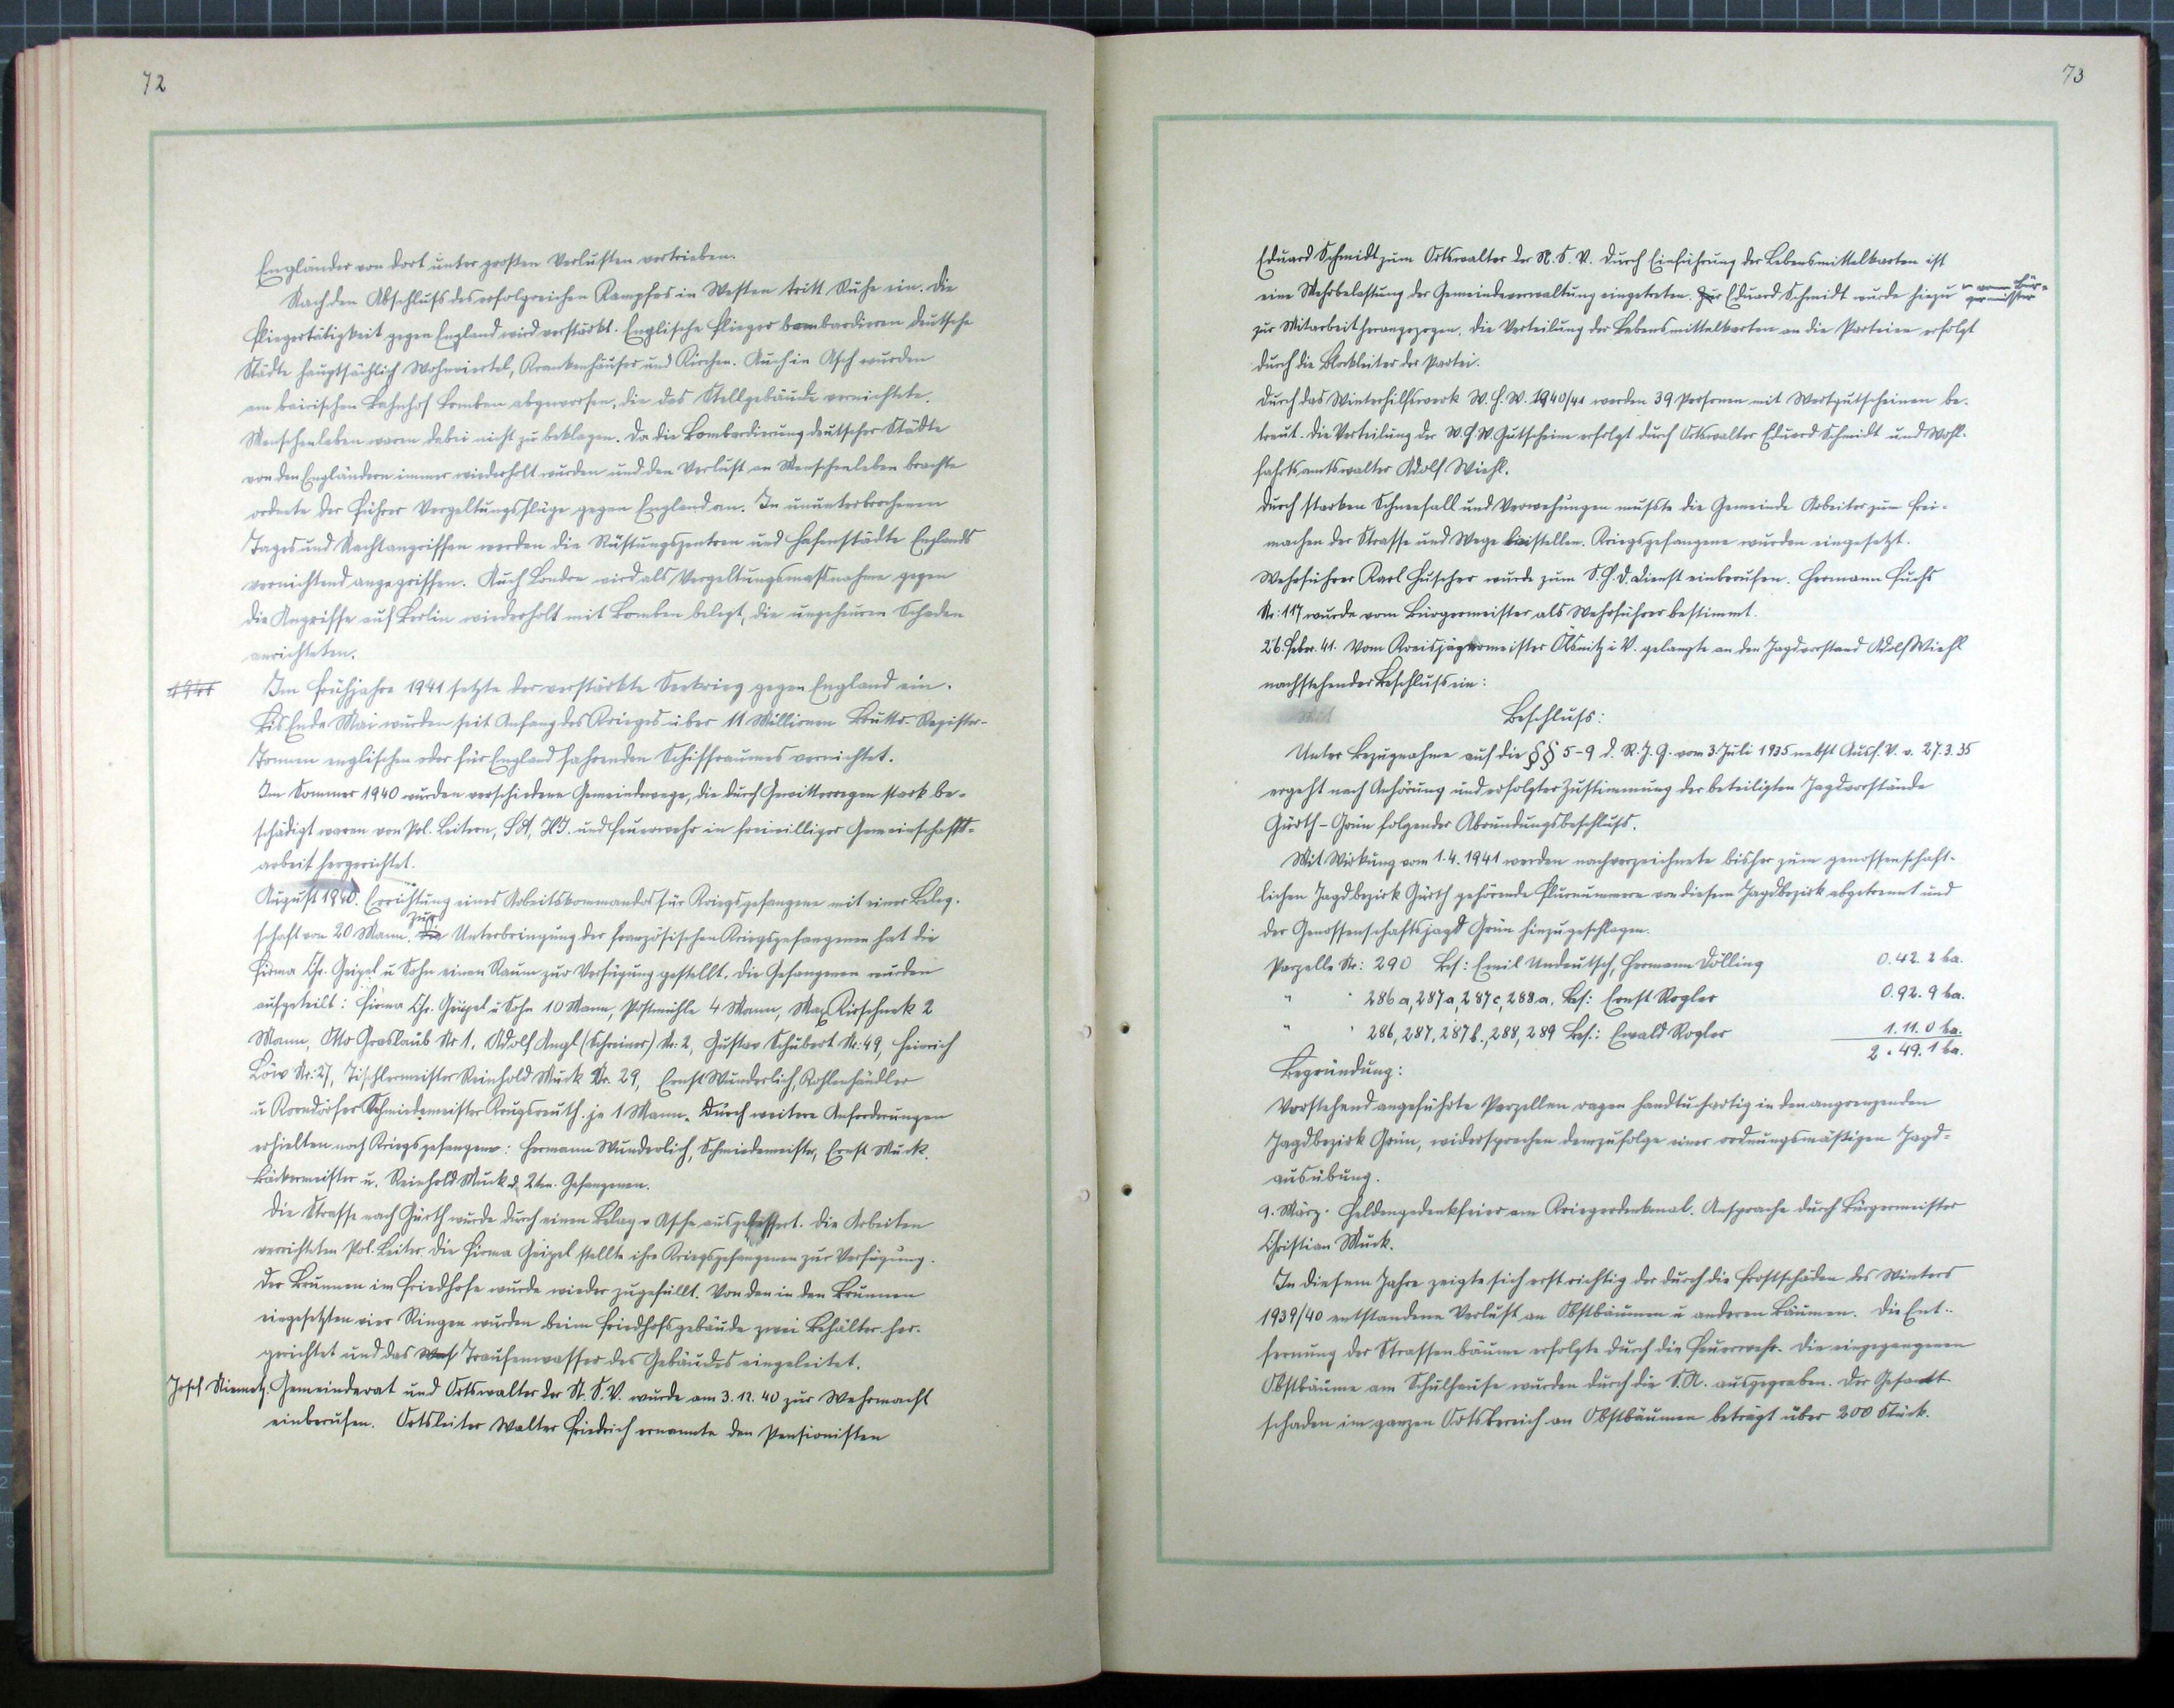 72
Engländer von dort unter großen Verlusten vertrieben.
Nach den Abschluß des erfolgreichen Kampfes in Westen tritt Ruhe ein. Die
Fliegertätigkeit gegen England wird verstärkt. Englische Flieger bombardieren deutsche
Städte hauptsächlich Wohnviertel, Krankenhäuser und Kirchen. Auch in Asch wurden
am bairischen Bahnhof Bomben abgeworfen, die das Stellgebäude vernichtete.
Menschenleben waren dabei nicht zu beklagen. Da die Bombardierung deutscher Städte
von den Engländern immer wiederholt wurden und den Verlust an Menschenleben brachte
ordnete der Führer Vergeltungsflüge gegen England an. In ununterbrochenen
Tages und Nachtangriffen werden die Rüstungszentren und Hafenstädte Englands
vernichtend angegriffen. Auch London wird als Vergeltungsmaßnahme gegen
die Angriffe auf Berlin wiederholt mit Bomben belegt, die ungeheuren Schaden
anrichteten.
1941 Im Frühjahre 1941 setzte der verstärkte Seekrieg gegen England ein.
Bis Ende Mai wurden seit Anfang des Krieges über 11 Millionen Brutto-Register-
Tonnen englischen oder für England fahrenden Schiffraumes vernichtet.
Im Sommer 1940 wurden verschiedene Gemeindewege, die durch Gewitterregen stark be-
schädigt waren von Pol. Leitern, SA, HJ. und Feuerwehr in freiwilliger Gemeinschafts-
arbeit hergerichtet.
August 1940. Errichtung eines Arbeitskommandos für Kriegsgefangene mit einer Beleg-
schaft von 20 Mann. die zur Unterbringung der französischen Kriegsgefangenen hat die
Firma Chr. Geipel u Sohn einen Raum zur Verfügung gestellt. Die Gefangenen wurden
aufgeteilt: Firma Chr. Geipel u Sohn 10 Mann, Postmühle 4 Mann, Max Kirschnek 2
Mann, Otto Graslaub Nr 1, Adolf Angl (Schreiner) Nr: 2, Gustav Schubert Nr: 49, Heinrich
Löw Nr: 27, Tischlermeister Reinhold Muck Nr. 29, Ernst Wunderlich, Kohlenhändler
u Korndörfer Schmiedemeister Krugsreuth. je 1 Mann. Durch weitere Anforderungen
erhielten noch Kriegsgefangene: Hermann Wunderlich, Schmiedemeister, Ernst Muck.
Bäckermeister u. Reinhold Muck d. 2ten. Gefangenen.
Die Strasse nach Gürth wurde durch einen Belag v Asche ausgebessert. Die Arbeiten
verrichteten Pol. Leiter. Die Firma Geipel stellte ihre Kriegsgefangenen zur Verfügung.
Der Brunnen im Friedhofe wurde wieder zugefüllt. Von den in den Brunnen
eingesetzten vier Ringen wurden beim Friedhofsgebäude zwei Behälter her-
gerichtet und das Traufenwasser des Gebäudes eingeleitet.
Josef Niemetz. Gemeinderat und Ortswalter der N. S. V. wurde am 3. 12. 40 zur Wehrmacht
einberufen. Ortsleiter Walter Friedrich ernannte den Pensionisten
73
Eduard Schmidt zum Ortswalter der N. S. V. Durch Einführung der Lebensmittelkarten ist
eine Mehrbelastung der Gemeindeverwaltung eingetreten. Eduard Schmidt wurde hiezu v. vom Bür-
germeister
zur Mitarbeit herangezogen. Die Verteilung der Lebensmittelkarten an die Parteien erfolgt
durch die Blockleiter der Partei.
Durch das Winterhilfswerk W. H. W. 1940/41 werden 39 Personen mit Wertgutscheinen be-
treut. Die Verteilung der W. H. W. Gutscheine erfolgt durch Ortswalter Eduard Schmidt und Wohl-
fahrtsamtswalter Adolf Wiehl.
Durch starken Schneefall und Verwehungen mußte die Gemeinde Arbeiter zum Frei-
machen der Strasse und Wege beistellen. Kriegsgefangene wurden eingesetzt.
Wehrführer Karl Huscher wurde zum S. H. D. Dienst einberufen. Hermann Fuchs
Nr: 117 wurde vom Bürgermeister als Wehrführer bestimmt.
26. Febr. 41. Vom Kreisjägermeister Ölsnitz i V. gelangte an den Jagdvorstand Adolf Wiehl
nachstehender Beschluß ein:
Beschluß:
Unter Bezugnahme auf die §§ 5-9 d. R. J. G. vom 3. Juli 1935 nebst Ausf. V. v. 27.3.35
ergeht nach Anhörung und erfolgter Zustimmung der beteiligten Jagdvorstände
Gürth-Grün folgender Abrundungsbeschluß.
Mit Wirkung vom 1.4.1941 werden nachverzeichnete bisher zum genossenschaft-
lichen Jagdbezirk Gürth gehörende Flurnummern von diesem Jagdbezirk abgetrennt und
der Genossenschaftsjagd Grün hinzugeschlagen.
Parzelle Nr: 290 Bes: Emil Undeutsch, Hermann Dölling 0.42.2 ha.
" " 286 a, 287 a, 287 c, 288 a. Bes: Ernst Rogler 0.92.9 ha.
" " 286, 287, 287 b., 288, 289 Bes.: Ewald Rogler 1.11.0 ha.
2.49.1 ha.
Begründung:
Vorstehend angeführte Parzellen ragen handtuchartig in den angrenzenden
Jagdbezirk Grün, widersprechen demzufolge einer ordnungsmäßigen Jagd-
ausübung.
9. März. Heldengedenkfeier am Kriegerdenkmal. Ansprache durch Bürgermeister
Christian Muck.
In diesem Jahre zeigte sich erst richtig der durch die Frostschäden des Winters
1939/40 entstandene Verlust an Obstbäumen u anderen Bäumen. Die Ent-
fernung der Strassenbäume erfolgte durch die Feuerwehr. Die eingegangenen
Obstbäume am Schulhause wurden durch die S.A. ausgegraben. Der Gesamt-
schaden im ganzen Ortsbereich an Obstbäumen beträgt über 200 Stück.